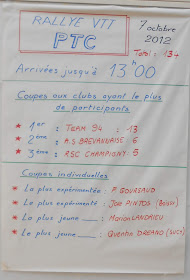 RALLYE VTT
PTC
7 octobre
2012
Total : 134
Arrivées jusqu'à 13h00
Coupes aux clubs ayant le plus
de participants
* 1er : TEAM 94 : 13
* 2ème : A.S BREVANNAISE 6
* 3ème : RSC CHAMPIGNY 5
Coupes individuelles
* La plus expérimentée : F GOURSAUD
* Le plus expérimenté : Joe PINTOS (Boissi)
* La plus jeune : Marion LANDRIEU
* Le plus jeune : Quentin DREANO (Sucy)